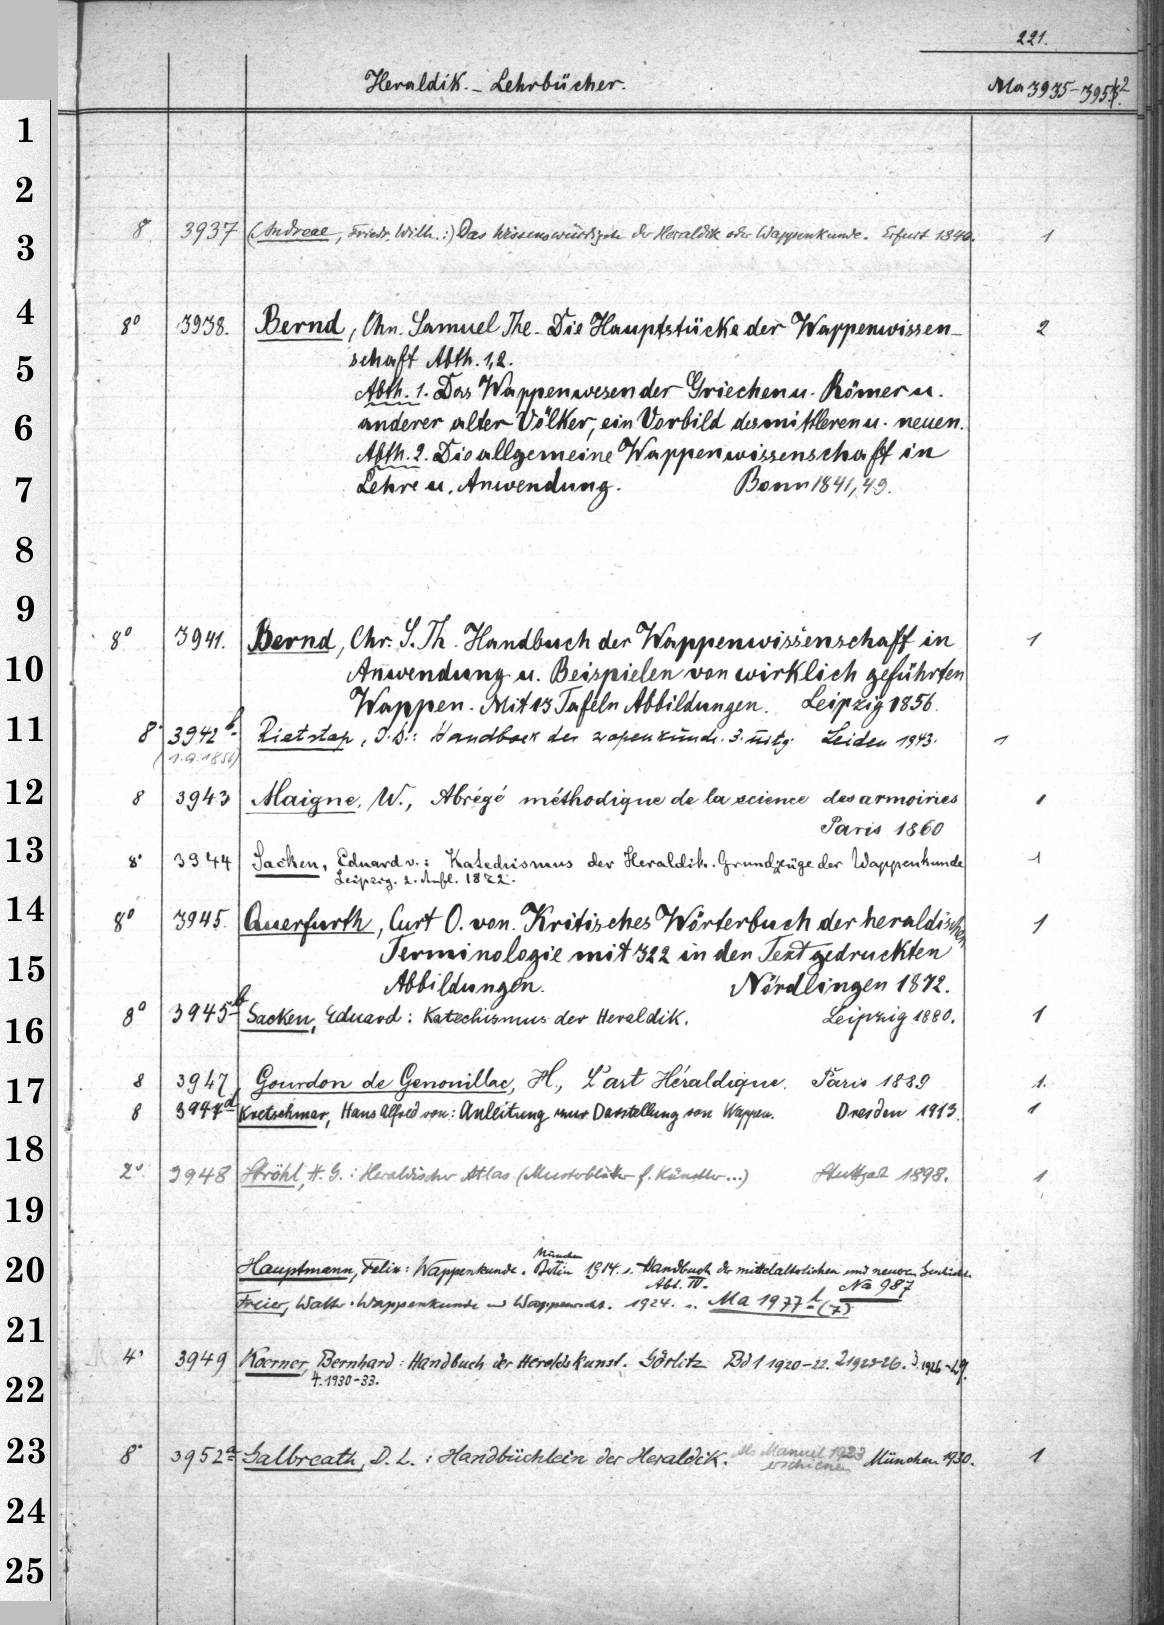 221.
Heraldik. - Lehrbücher. Ma 3935-395
1
2
8 3937 (Andreae, Friedr. Wilh.:) Das Wissenswürdigste der Heraldik oder Wappenkunde. Erfurt 1840. 1
3
4
8° 3938. Bernd, Chn. Samuel The. Die Hauptstücke der Wappenwissen- 2
schaft Abth. 1,2.
5
Abth. 1. Das Wappenwesen der Griechen u. Römer u.
6
anderer alter Völker, ein Vorbild des mittleren u. neuen.
Abth. 2. Die allgemeine Wappenwissenschaft in
7
Lehre u. Anwendung. Bonn 1841, 49.
8
9
8° 3941. Bernd, Chr. S. Th. Handbuch der Wappenwissenschaft in 1
10
Anwendung u. Beispielen von wirklich geführten
Wappen. Mit 13 Tafeln Abbildungen. Leipzig 1856.
11
8° 3942b Rietstap, J. B.: Handboek der wapenkunde. 3. uitg. Leiden 1943. 1
(1.A. 1856)
12
8 3943 Maigne, W., Abrégé méthodique de la science des armoiries 1
Paris 1860
13
8° 3944 Sacken, Eduard v.: Katechismus der Heraldik. Grundzüge der Wappenkunde 1
Leipzig. 2. Aufl. 1872.
14
8° 3945. Querfurth, Curt O. von. Kritisches Wörterbuch der heraldischen 1
Terminologie mit 322 in den Text gedruckten
15
Abbildungen. Nördlingen 1872.
16
8° 3945b Sacken, Eduard: Katechismus der Heraldik. Leipzig 1880. 1
17
8 3947 Gourdon de Genouillac, H., L'art Héraldique. Paris 1889 1.
8 3947d Kretschmar, Hans Alfred von: Anleitung zur Darstellung von Wappen. Dresden 1913. 1
18
2° 3948 Ströhl, H. G.: Heraldischer Atlas (Musterblätter f. Künstler...) Stuttgart 1898. 1
19
20
München
Hauptmann, Felix: Wappenkunde. Berlin 1914. s. Handbuch der mittelalterlichen und neueren Geschichte.
Abt. IV. Na 987
Freier, Walth. Wappenkunde und Wappenrecht. 1924. s. Ma 1977 h (7)
21
4° 3949 Koerner, Bernhard: Handbuch der Heroldskunst. Görlitz Bd 1 1920-22. 2 1923-26. 3. 1926-29.
22
4. 1930-33.
23
8° 3952a Galbreath, D. L.: Handbüchlein der Heraldik. Als Manuel 1923 erschienen München 1930. 1
24
25